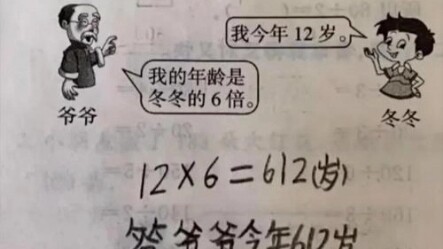 我今年 12 岁。
我的年龄是
冬冬的 6 倍。
爷爷
冬冬
12×6=612(岁)
答爷爷今年612岁